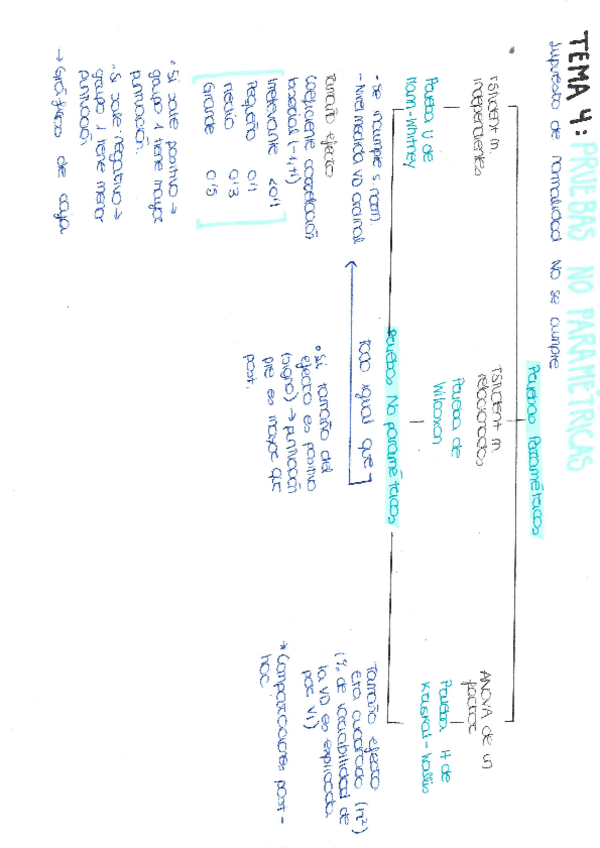 TEMA 4: PRUEBAS NO PARAMÉTRICAS
Supuesto de normalidad NO se cumple
Pruebas Paramétricas
TStudent m.
independientes
Prueba U de
Mann-Whitney
TStudent m.
relacionadas
Prueba de
Wilcoxon
ANOVA de un
factor
Prueba H de
Kruskal-Wallis
Pruebas No paramétricas
- Se incumple s. norm.
- Nivel medida VD ordinal
Tamaño efecto
Coeficiente correlación
biserial (-1,+1)
Irrelevante <0'1
Pequeño 0'1
Medio 0'3
Grande 0'5
• Si sale positivo →
grupo 1 tiene mayor
puntuación.
• Si sale negativo →
grupo 1 tiene menor
puntuación
→ Gráficos de caja
Todo igual que
• Si tamaño del
efecto es positivo
(signo) → puntuación
pre es mayor que
post.
Tamaño efecto
Eta cuadrado (η²)
(% de variabilidad de
la VD es explicada
por VI)
→ Comparaciones post-
hoc